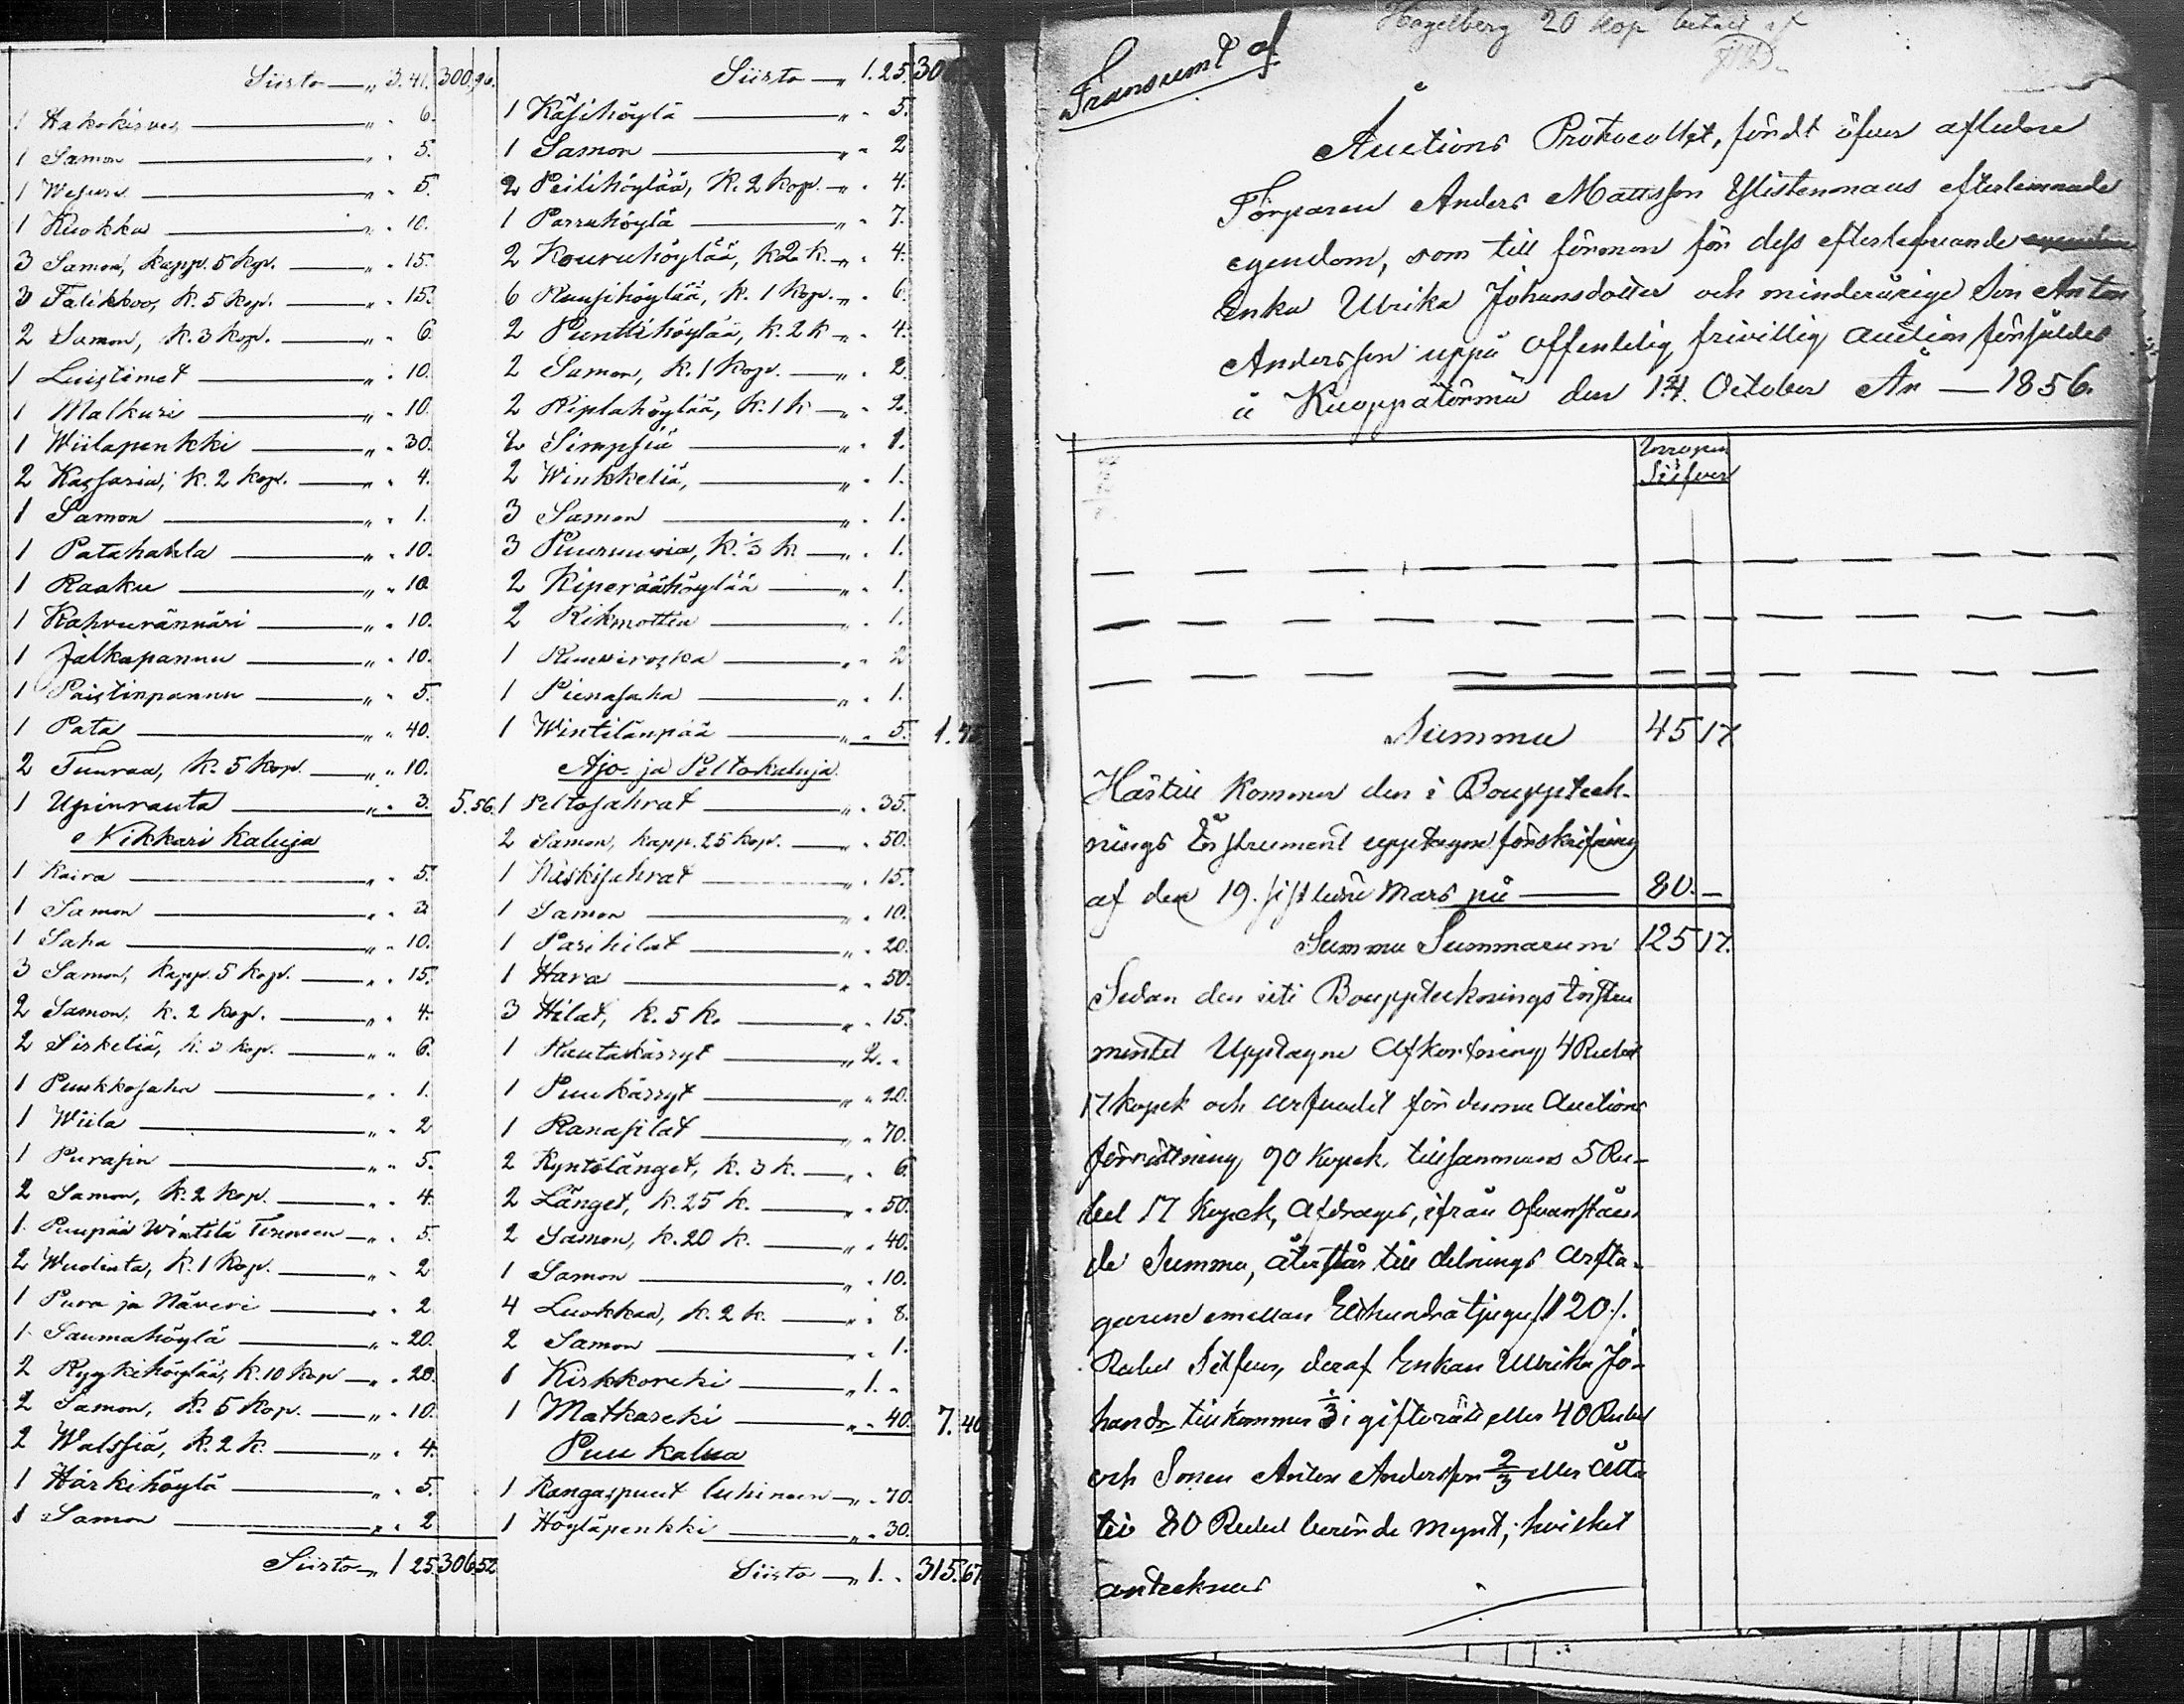 Siirto — " 3.41. 300,96.
1 Hakokirves — " - 6.
1 Samon — " - 5.
1 Wesuri — " - 5.
1 Kuokka — " - 10.
3 Samon, kapp. 5 kop. — " - 15.
3 Talikkoo, k. 5 kop. — " - 15.
2 Samon, k. 3 kop. — " - 6.
1 Luistimet — " - 10.
1 Malkuri — " - 10.
1 Wiilapenkki — " - 30.
2 Kassaria, k. 2 kop. — " - 4.
1 Samon — " - 1.
1 Patahahla — " - 10.
1 Raaku — " - 10
1 Kahvurännäri — " - 10.
1 Jalkapannu — " - 10.
1 Paistinpannu — " - 5.
1 Pata — " - 40.
2 Tuuraa, k. 5 kop. — " - 10.
1 Upinrauta — " - 3. 5.56.
Nikkari kaluja
1 Kaira — " - 5.
1 Samon — " - 3
1 Saha — " - 10.
3 Samon, kapp. 5 kop. — " - 15.
2 Samon, k. 2 kop. — " - 4.
2 Sirkeliä, k. 3 kop. — " - 6.
1 Puukkosaha — " - 1.
1 Wiila — " - 2
1 Purasin — " - 5.
2 Samon, k. 2 kop. — " - 4.
1 Puupää Wintilä Terineen — " - 5.
2 Wuolinta, k. 1 kop. — " - 2
1 Pura ja Näveri — " - 2
1 Saumahöylä — " - 20.
2 Rynkihöylää, k. 10 kop — " - 20.
2 Samon, k. 5 kop. — " - 10.
2 Walssiä, k. 2 k. — " - 4.
1 Härkihöylä — " - 5.
1 Samon — " - 2
Siirto — " 1 25. 306 52
Siirto — " 1.25. 306
1 Käsihöylä — " - 5.
1 Samon — " - 2
2 Peilihöylää, k. 2 kop. — " - 4.
1 Parruhöylä — " - 7.
2 Kouruhöylää, k 2 k. — " - 4.
6 Ruusihöylää, k. 1 kop. — " - 6.
2 Punttihöylää, k. 2 k — " - 4.
2 Samon, k. 1 kop. — " - 2.
2 Riplahöylää, k. 1 k — " - 2.
2 Simpsiä — " - 1.
2 Winkkeliä, — " - 1.
3 Samon — " - 1.
3 Puuruuvia, k. ⅓ k. — " - 1.
2 Kiperäähöylää — " - 1.
2 Rikmottia — " - 1.
1 Ruuviroska — " - 2
1 Pienasaha — " - 1.
1 Wintilänpää — " - 5. 1.75
Ajo- ja Peltokaluja.
1 Peltosahrat — " - 35.
2 Samon, kapp. 25 kop. — " - 50.
1 Riskisahrat — " - 15.
1 Samon — " - 10.
1 Parihilat — " - 20.
1 Hara — " - 50.
3 Hilat, k. 5 k. — " - 15.
1 Rautakärryt — " 2. -
1 Puukärryt — " - 20.
1 Ranasilat — " - 70.
2 Kyntölänget, k. 3 k. — " - 6.
2 Länget, k. 25 k. — " - 50.
2 Samon, k. 20 k. — " - 40.
1 Samon — " - 10.
4 Luokkaa, k. 2 k. — " - 8.
2 Samon — " - 1.
1 Kirkkoreki — " 1. -
1 Matkareki — " - 40. 7.40
Puu kalua
1 Kangaspuut luhineen — " - 70.
1 Höyläpenkki — " - 30.
Siirto — " 1. - 315.67
Hagelberg 20 kop betalt af
Transumt af
Auctions Protocollet, fördt öfver aflidne
Torparen Anders Mattsson Ylistenmaas efterlemnade
egendom, som till förmon för dess efterlefvande
Enka Ulrika Johansdotter och minderårige Son Anton
Andersson uppå offentelig frivillig auction försåldes
å Kuoppatörmä den 14. October År — 1856.
Silfver
Summa 45 17
Härtill kommer den i Bouppteck-
nings Instrument upptagne förskrifning
af den 19. sistledne Mars på — 80. —
Summa Summarum 125 17.
Sedan den uti Bouppteknings Instru
mentet Upptagne Afkortning 4 Rubel
17 kopek och arfvodet för denna Auctions
förrättning 70 Kopek, tillsammans 5 Ru-
bel 17 Kopek, afdrages, ifrån ofvanståen
de Summa, återstår till delnings arfta-
garene emellan Etthundra tjugu /120/.
Rubel Silfver, deraf Enkan Ulrika Jo-
hansdr tillkommer ⅓ i giftorätt eller 40 Rubel
och Sonen Anton Andersson 2/3 eller Åtta
tio 80 Rubel berörde mynt, hvilket
antecknas